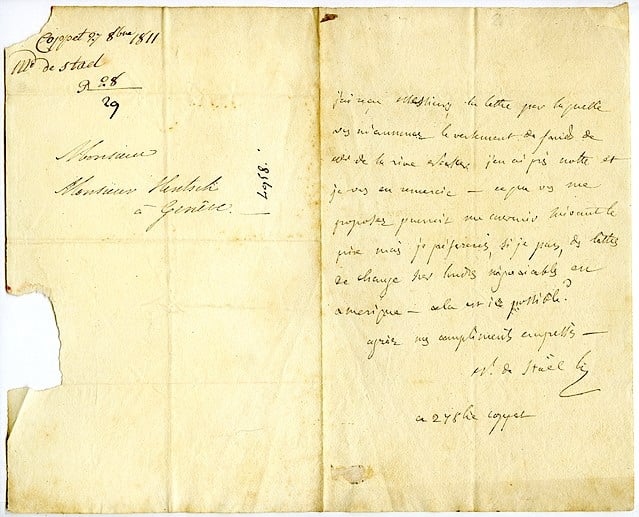 Coppet 27 8bre 1811
Mde de Stael
R 28
29
Monsieur
Monsieur Hentsch
à Genève.
7918.
j'ai reçu Messieurs la lettre par laquelle
vs m'annoncez le versement de fonds de
de la rive j'en ai pris notte et
je vs en remercie — ce que vs me
proposez pourroit me convenir suivant le
prix mais je préférerois, si je puis, des lettres
de change sur londres négociables en
amerique — cela est-il possible?
agréez mes compliments empressés —
N. de Staël H
ce 27 8bre coppet